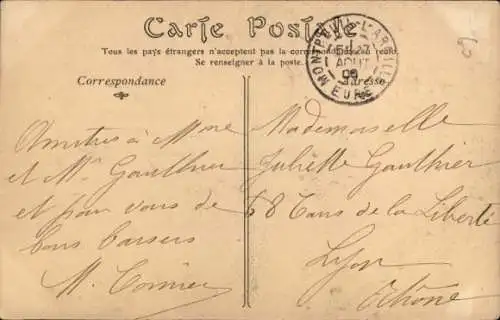 Carte Postale
Tous les pays étrangers n'acceptent pas la correspondance au recto.
Se renseigner à la poste.
Correspondance
Adresse
EURE
AOUT
Amitiés à Mme
et Mr Gauthier
et pour vous de
bons baisers
M.
Mademoiselle
Juliette Gauthier
68 Cours de la Liberté
Lyon
Rhône